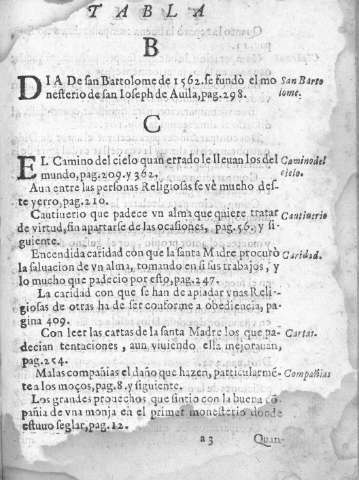 TABLA
B
DIA De san Bartolome de 1562. se fundò el mo San Barto
nesterio de san Ioseph de Auila, pag. 298. lome.
C
EL Camino del cielo quan errado le lleuan los del Camino del
mundo, pag. 209. y 362. cielo.
Aun entre las personas Religiosas se vè mucho des-
te yerro, pag. 210.
Cautiuerio que padece vn alma que quiere tratar Cautiuerio
de virtud, sin apartarse de las ocasiones, pag. 56. y si-
guiente.
Encendida caridad con que la santa Madre procurò Caridad.
la saluacion de vn alma, tomando en si sus trabajos, y
lo mucho que padecio por esto, pag. 247.
La caridad con que se han de apiadar vnas Reli-
giosas de otras ha de ser conforme a obediencia, pa-
gina 409.
Con leer las cartas de la santa Madre los que pa- Cartas.
decian tentaciones, aun viuiendo ella mejorauan,
pag. 254.
Malas compañias el daño que hazen, particularmẽ- Compañias
te a los moços, pag. 8. y siguiente.
Los grandes prouechos que sintio con la buena cõ
pañia de vna monja en el primer monesterio donde
estuuo seglar, pag. 12.
a 3 Quan-